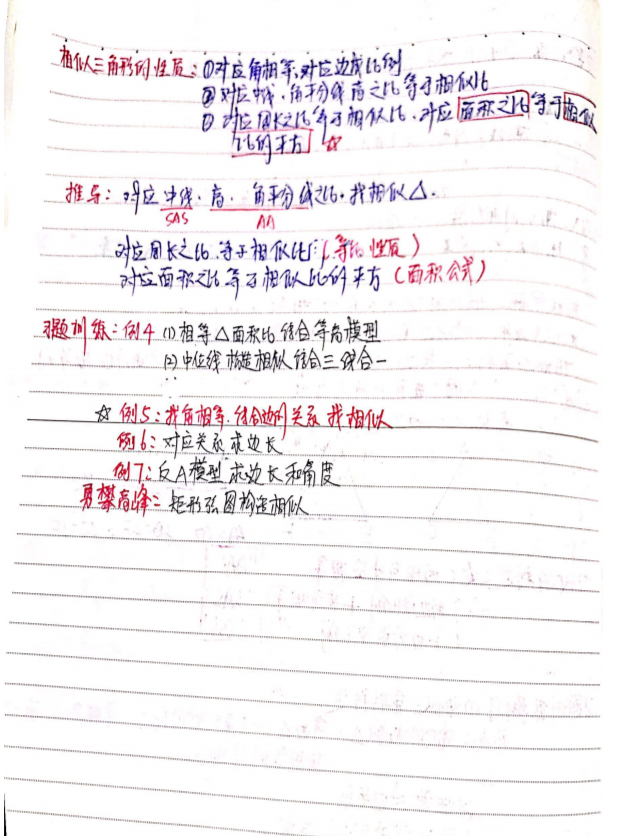 相似三角形的性质：①对应角相等，对应边成比例
②对应中线、角平分线高之比等于相似比
③对应周长之比等于相似比，对应面积之比等于相似
比的平方 ☆
推导：对应中线、高、角平分线之比，找相似△.
SAS AA
对应周长之比等于相似比（等比性质）
对应面积之比等于相似比的平方（面积公式）
习题训练：例4 (1)相等△面积比结合等高模型
(2)中位线构造相似结合三线合一
☆ 例5：找角相等，结合边的关系找相似
例6：对应关系求边长
例7：反A模型求边长和角度
勇攀高峰：矩形弦图构造相似